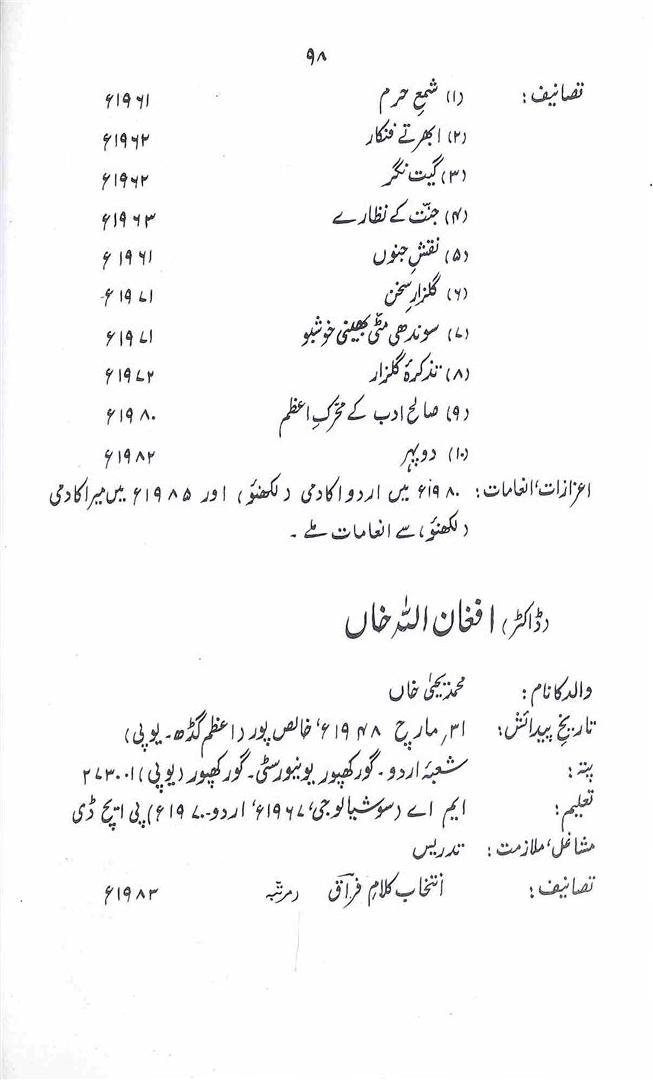 ۹۸
تصانیف: (۱) شمعِ حرم ۱۹۶۱ء
(۲) ابھرتے فنکار ۱۹۶۲ء
(۳) گیت نگر ۱۹۶۲ء
(۴) جنّت کے نظارے ۱۹۶۳ء
(۵) نقشِ جنوں ۱۹۶۱ء
(۶) گلزارِ سخن ۱۹۷۱ء
(۷) سوندھی مٹّی بھینی خوشبو ۱۹۷۱ء
(۸) تذکرۂ گلزار ۱۹۷۲ء
(۹) صالح ادب کے محرّکِ اعظم ۱۹۸۰ء
(۱۰) دوپہر ۱۹۸۲ء
اعزازات، انعامات: ۱۹۸۰ء میں اردو اکادمی (لکھنؤ) اور ۱۹۸۵ء میں میر اکادمی
(لکھنؤ) سے انعامات ملے۔
(ڈاکٹر) افغان اللہ خاں
والد کا نام: محمد یحییٰ خاں
تاریخِ پیدائش: ۳۱؍ مارچ ۱۹۴۸ء، خالص پور (اعظم گڈھ۔ یو پی)
پتہ: شعبۂ اردو۔ گورکھپور یونیورسٹی۔ گورکھپور (یو پی) ۲۷۳۰۰۱
تعلیم: ایم اے (سوشیالوجی، ۱۹۶۷ء، اردو ۱۹۷۰ء) پی ایچ ڈی
مشاغل، ملازمت: تدریس
تصانیف: انتخاب کلامِ فراق (مرتبہ) ۱۹۸۳ء